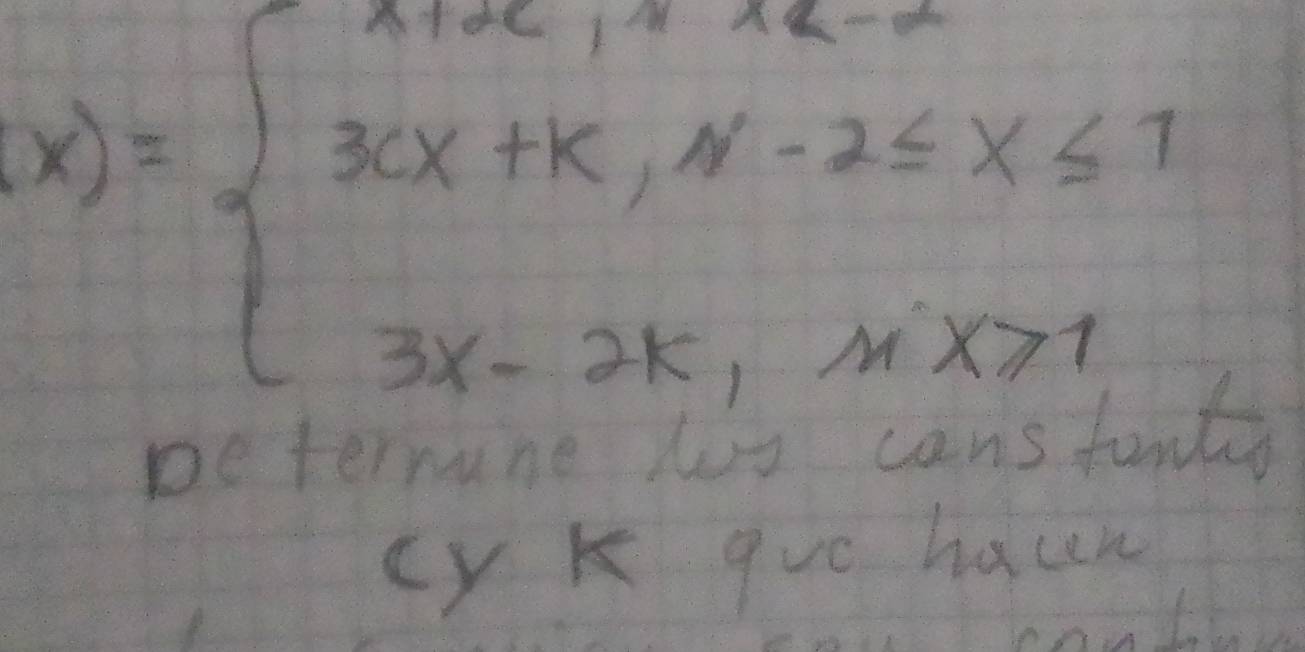 x+2c, si x<-2
(x)= 3cx +K, si -2≤ x ≤ 1
3x- 2K, si x>1
Determine las constantes
c y K que hacen